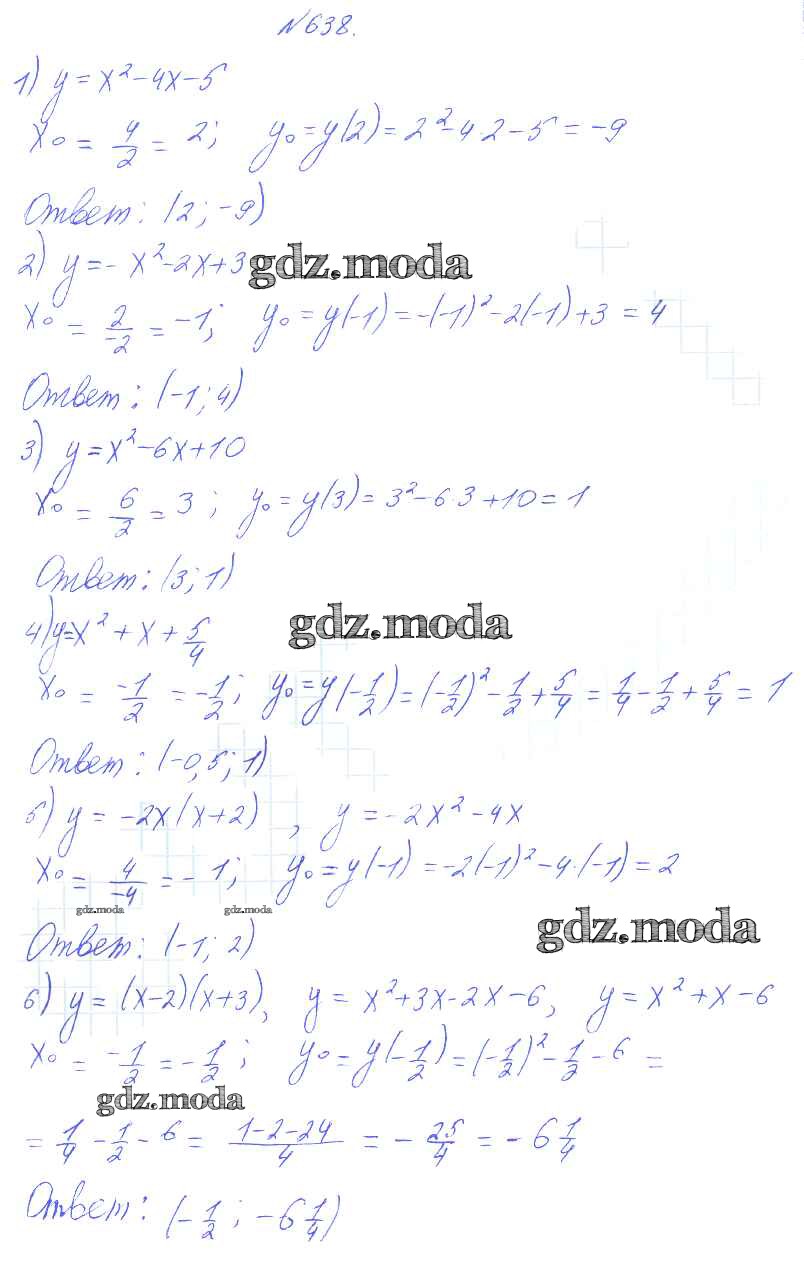 №638.
1) y = x² – 4x – 5
x₀ = 4/2 = 2; y₀ = y(2) = 2² – 4·2 – 5 = –9
Ответ: (2; –9)
2) y = – x² – 2x + 3
gdz.moda
x₀ = 2/–2 = –1; y₀ = y(–1) = –(–1)² – 2(–1) + 3 = 4
Ответ: (–1; 4)
3) y = x² – 6x + 10
x₀ = 6/2 = 3; y₀ = y(3) = 3² – 6·3 + 10 = 1
Ответ: (3; 1)
4) y = x² + x + 5/4
gdz.moda
x₀ = –1/2 = –1/2; y₀ = y(–1/2) = (–1/2)² – 1/2 + 5/4 = 1/4 – 1/2 + 5/4 = 1
Ответ: (–0,5; 1)
5) y = –2x(x+2), y = –2x² – 4x
x₀ = 4/–4 = –1; y₀ = y(–1) = –2(–1)² – 4·(–1) = 2
gdz.moda gdz.moda
gdz.moda
Ответ: (–1; 2)
6) y = (x–2)(x+3), y = x² + 3x – 2x – 6, y = x² + x – 6
x₀ = –1/2 = –1/2; y₀ = y(–1/2) = (–1/2)² – 1/2 – 6 =
gdz.moda
= 1/4 – 1/2 – 6 = 1–2–24/4 = – 25/4 = – 6 1/4
Ответ: (–1/2; –6 1/4)